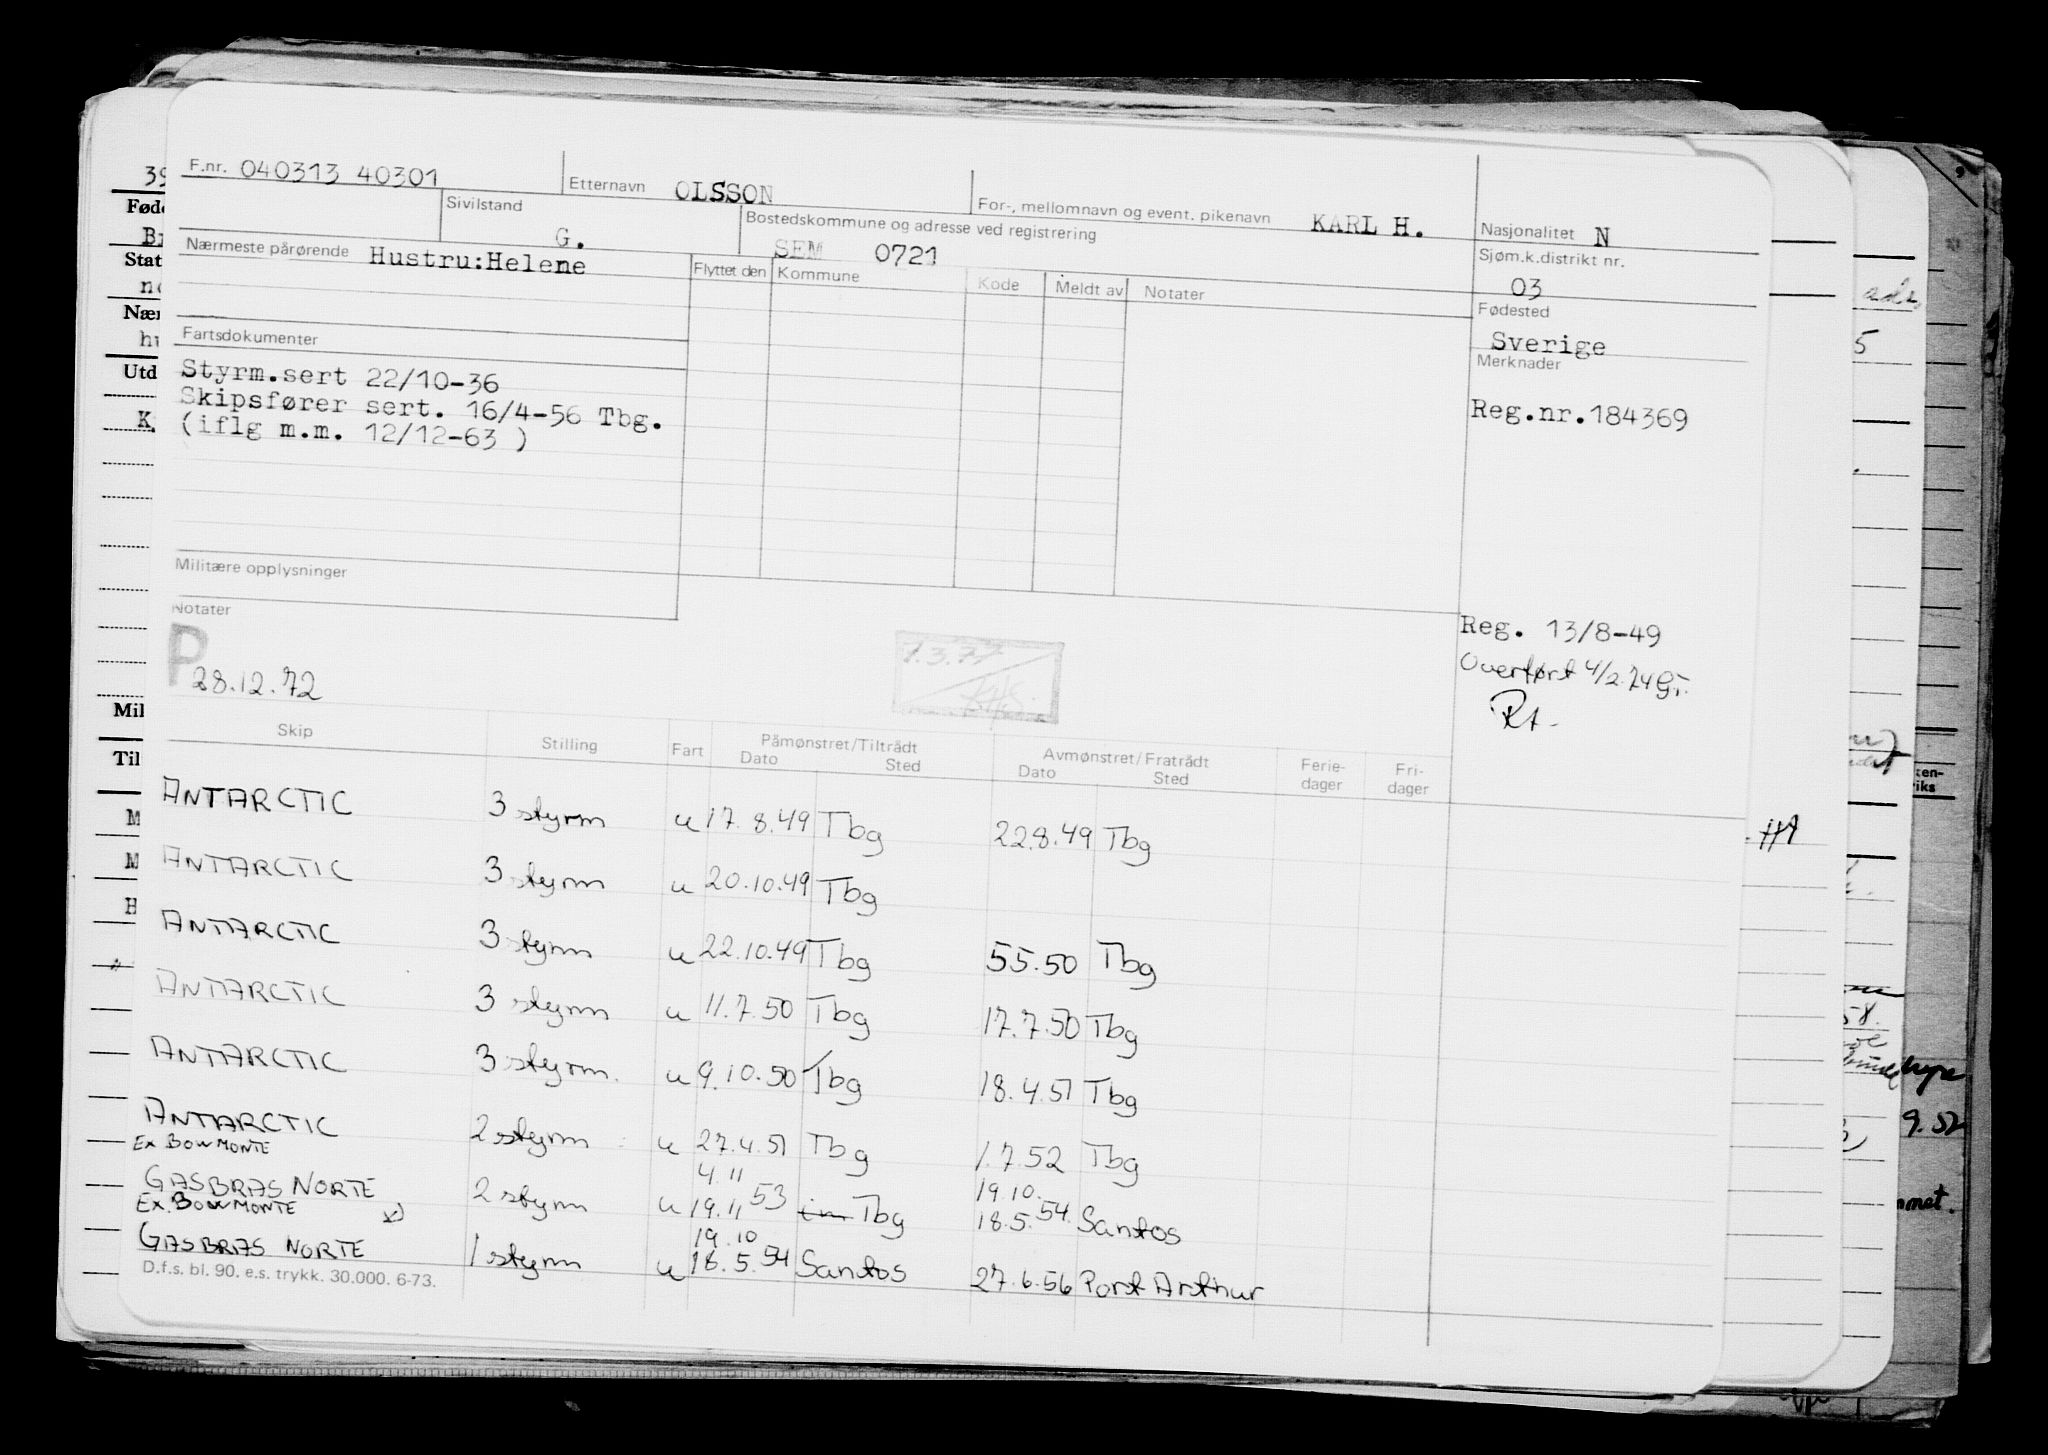 F.nr. 040313 40301 Etternavn OLSSON For-, mellomnavn og event. pikenavn KARL H. Nasjonalitet N
Sivilstand G. Bostedskommune og adresse ved registrering SEM 0721 Sjøm.k.distrikt nr. 03
Nærmeste pårørende Hustru:Helene Flyttet den Kommune Kode Meldt av Notater
Fødested
Sverige
Fartsdokumenter
Merknader
Styrm.sert 22/10-36
Skipsfører sert. 16/4-56 Tbg.
(iflg m.m. 12/12-63 )
Reg.nr.184369
Militære opplysninger
Notater
P
28.12.72
1.3.77
Reg. 13/8-49
Overført 4/2.74
Skip Stilling Fart Påmønstret/Tiltrådt Dato Sted Avmønstret/Fratrådt Dato Sted Ferie-dager Fri-dager
ANTARCTIC 3 styrm u 17.8.49 Tbg 22.8.49 Tbg
ANTARCTIC 3 styrm u 20.10.49 Tbg
ANTARCTIC 3 styrm u 22.10.49 Tbg 5.5.50 Tbg
ANTARCTIC 3 styrm u 11.7.50 Tbg 17.7.50 Tbg
ANTARCTIC 3 styrm. u 9.10.50 Tbg 18.4.51 Tbg
ANTARCTIC 2 styrm u 27.4.51 Tbg 1.7.52 Tbg
Ex BOW MONTE 4.11 19.10.
GASBRAS NORTE 2 styrm u 19.11 53 Tbg 18.5.54. Santos
Ex. BOW MONTE 19.10
GASBRAS NORTE 1 styrm u 18.5.54 Santos 27.6.56 Port Arthur
D.f.s. bl. 90. e.s. trykk. 30.000. 6-73.